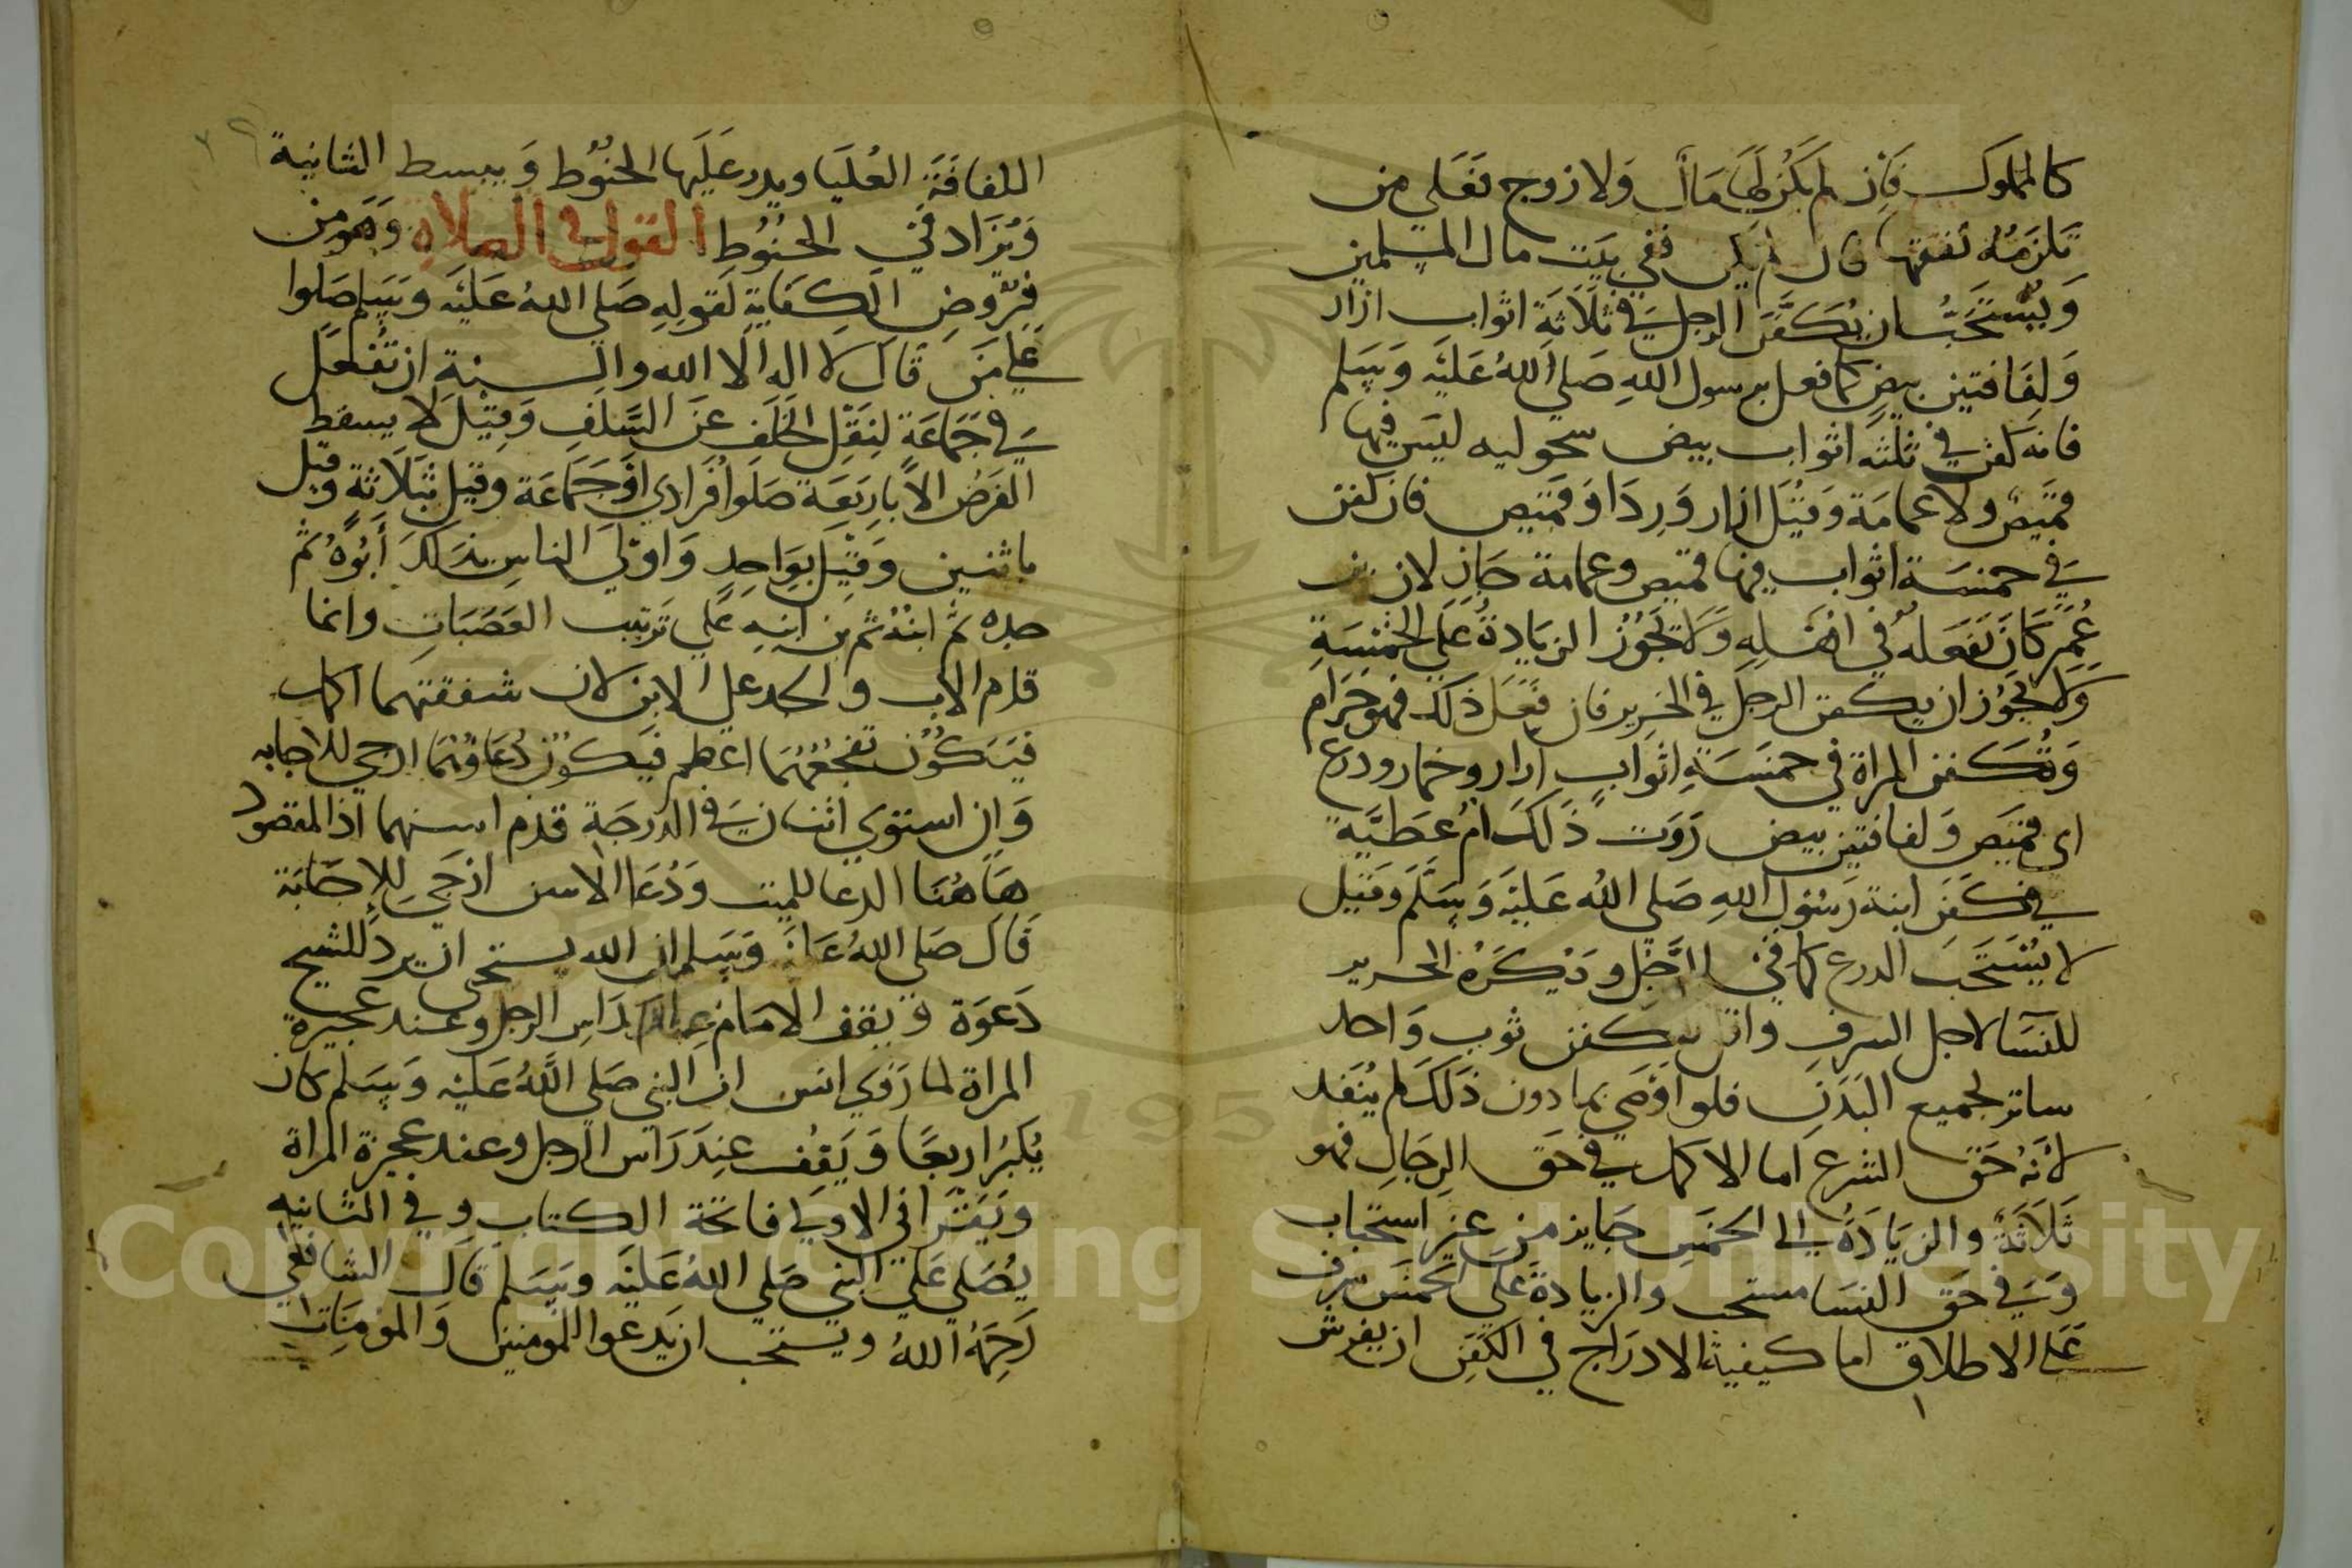 كالمملوك فان لم يكن لها مال ولا زوج فعلي من
تلزمه نفقتها فان لم يكن ففي بيت مال المسلمين
ويستحب ان يكفن الرجل في ثلاثة اثواب ازار
ولفافتين بيض كما فعل برسول الله صلي الله عليه وسلم
فانه كفن في ثلثه اثواب بيض سحوليه ليس فيها
قميص ولا عمامة وقيل ازار وردا وقميص فان كفن
في خمسة اثواب فيها قميص وعمامة جاز لان بن
عمر كان يفعله في اهله ولا تجوز الزيادة علي الخمسة
ولا يجوز ان يكفن الرجل في الحرير فان فعل ذلك فهو حرام
وتكفن المراة في خمسة اثواب ازار وخمار ودرع
اي قميص ولفافتين بيض روت ذلك ام عطية
في كفن ابنة رسول الله صلي الله عليه وسلم وقيل
لا يستحب الدرع كما في الرجل ويكره الحرير
للنسا لاجل السرف واقل الكفن ثوب واحد
ساتر لجميع البدن فلو اوصي بما دون ذلك لم ينفد
لانه حق الشرع اما الاكمل في حق الرجال فهو
ثلاثة والزيادة الي الخمس جايز من غير استحباب
وفي حق النسا مستحب والزيادة علي الخمس سرف
علي الاطلاق اما كيفية الادراج في الكفن ان يفرش
اللفافة العليا ويدر عليها الحنوط ويبسط الثانية
ويزاد في الحنوط القول في الصلاة وهو من
فروض الكفاية لقوله صلي الله عليه وسلم صلوا
علي من قال لا اله الا الله والسنة ان تفعل
في جماعة لنقل الخلف عن السلف وقيل لا يسقط
الفرض الا باربعة صلوا فرادي او جماعة وقيل بثلاثة وقيل
باثنين وقيل بواحد واولي الناس بذلك ابوه ثم
جده ثم ابنه ثم بن ابنه علي ترتيب العصبات وانما
قدم الاب والجد علي الابن لان شفقتهما اكمل
فيكون تفجعهما اعظم فيكون دعاوهما ارجي للاجابه
وان استوي اثنان في الدرجة قدم اسنهما اذ المقصود
هاهنا الدعا للميت ودعا الاسن ارجي للاجابة
قال صلي الله عليه وسلم ان الله يستحي ان يرد للشيخ
دعوة ويقف الامام عند راس الرجل وعند عجيزة
المراة لما روي انس ان النبي صلي الله عليه وسلم كان
يكبر اربعا ويقف عند راس الرجل وعند عجيزة المراة
ويقرا في الاولي فاتحة الكتاب وفي الثانيه
يصلي علي النبي صلي الله عليه وسلم قال الشافعي
رحمه الله ويستحب ان يدعوا للمومنين والمومنات
Copyright © King Saud University
1957